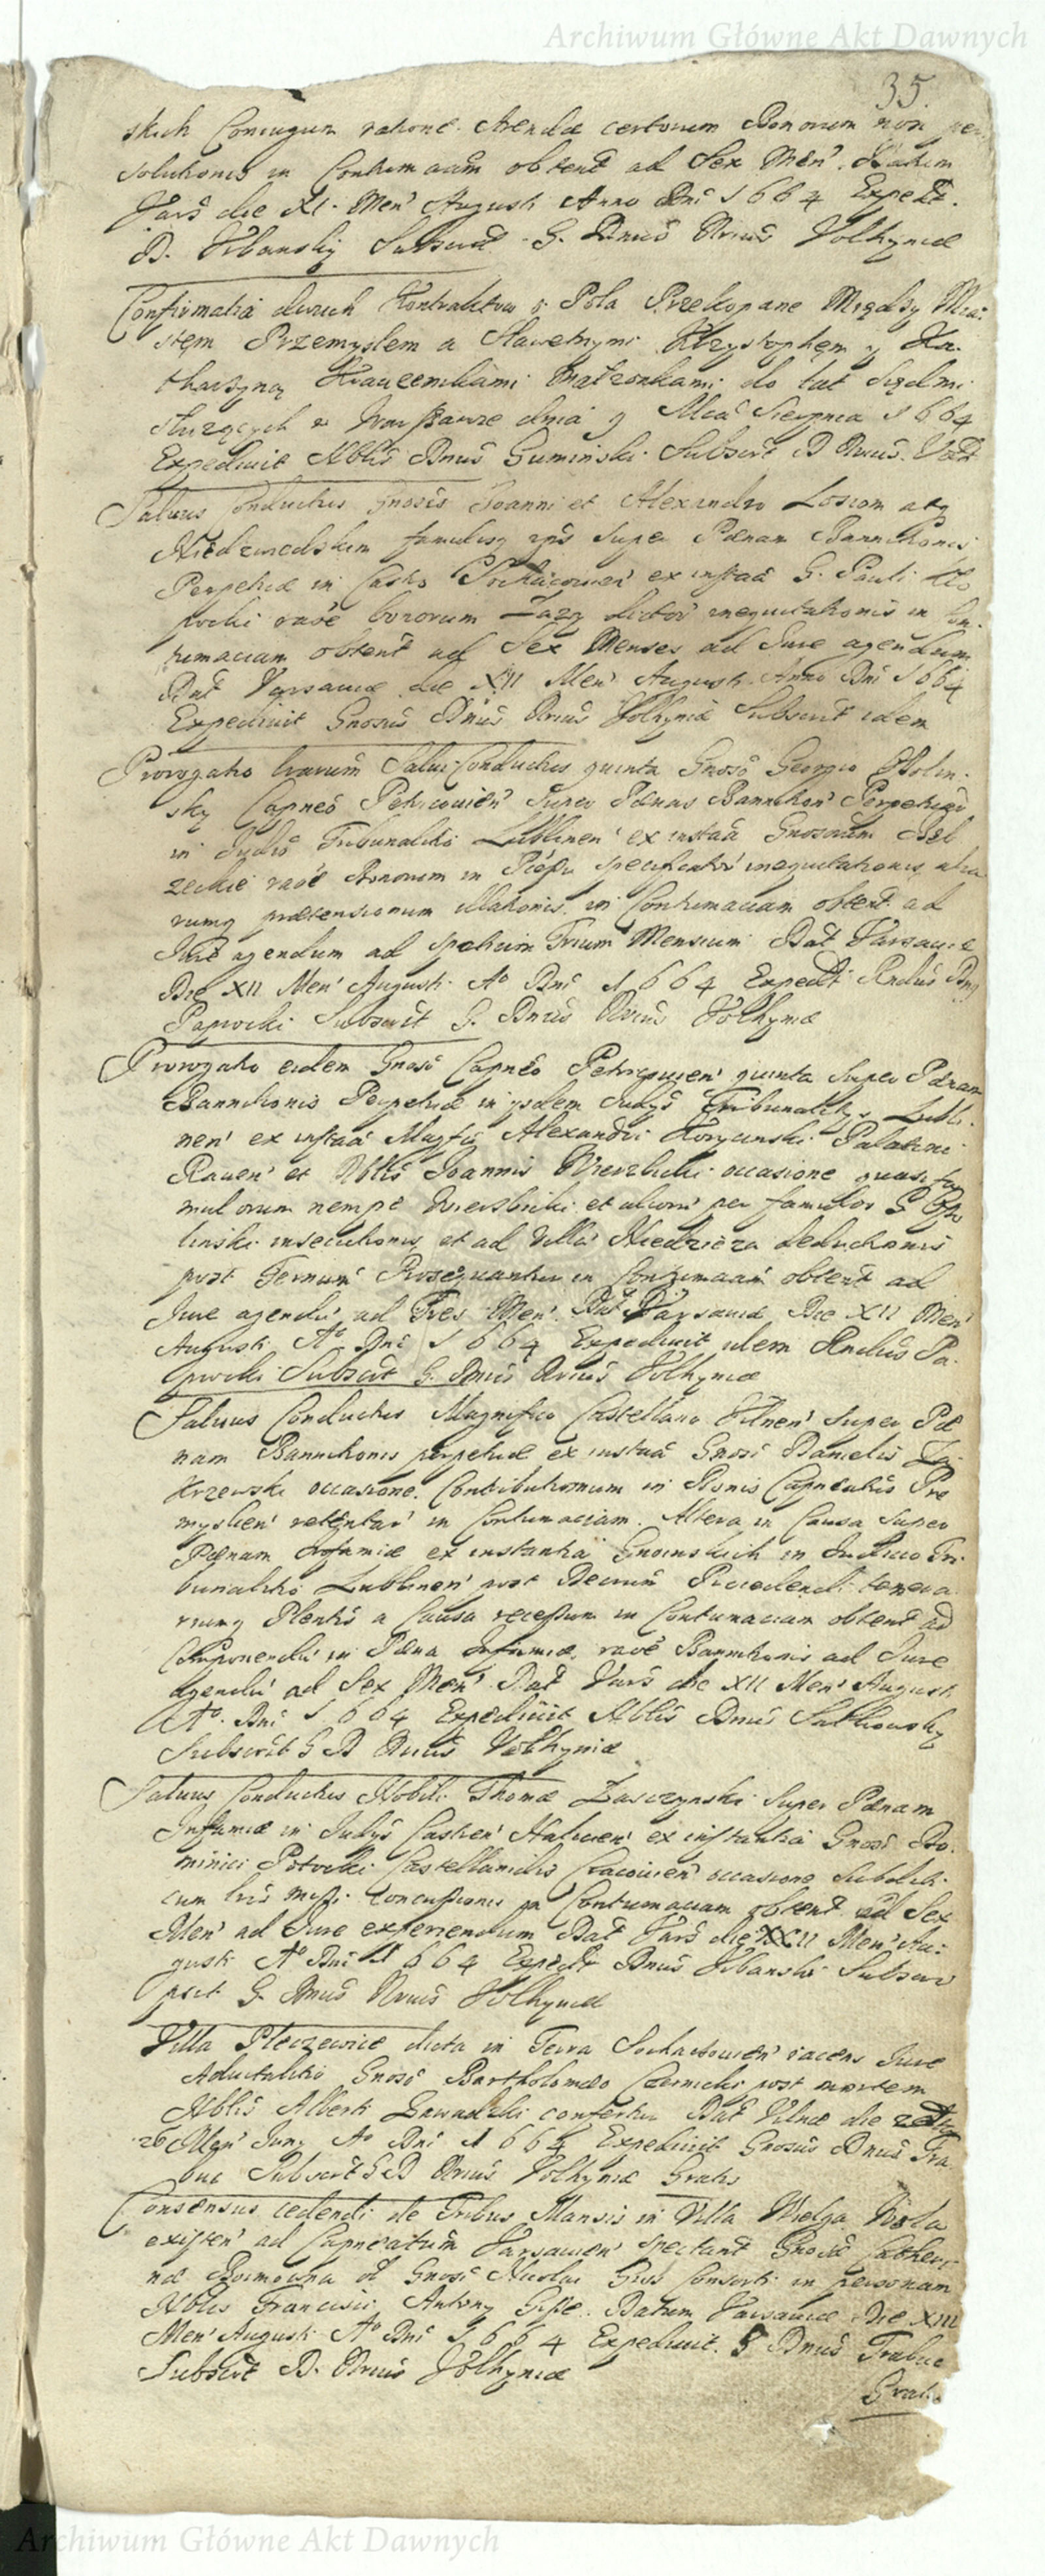 Archiwum Główne Akt Dawnych
35.
skich Coniugum ratione Arendæ certorum Bonorum non per
solutionis in Contumaciam obtent ad Sex Men Datum
Vars die XI Men Augusti Anno Dni 1664 Expedt.
D. Urbansky Subscrit G. Dnus Orius Volhyniæ
Confirmatia dwuch Kontraktow o Pola Przekopane Między Mia:
stęm Przemyslem a Sławetnymi Krzysztophęm y Ka:
tharzyną Małzonkami do lat siędmi
słuzących w Warszawie dnia 9 Mca Sierpnia 1664
Expedivit Nblis Dnus Guminski Subscrit D Orius Volh
Salvus Conductus Gnosis Joanni et Alexandro Losiom atq
Niedzwedskim famulisq ips Super Pænam Bannitionis
Perpetuæ in Castro Sochaczovien ex insta G. Pauli
rae bonorum Lazy dictor inequitationis in Con:
tumaciam obtent ad Sex Menses ad Jure agendum
Dat Varsaviæ die XII Men Augusti Anno Dni 1664
Expedivit Gnosus Dnus Orius Volhyniæ Subscrit idem
Prorogatio trarum Salvi Conductus quinta Gnoso Georgio Opolin:
sky Capneo Petricovien Super Pænas Bannition Perpetuar
in Judis Tribunalitio Lublinen ex insta Gnosorum Bel
zeckie rae Bonorum in specificator inequitationis alia
rumq prætensionum illationis in Contumaciam obtent ad
Jure agendum ad spatium Trium Mensium Dat Varsaviæ
Die XII Men Augusti Ao Dni 1664 Expedt Rndus Dnus
Paprocki Subscrit G. Dnus Orius Volhyniæ
Prorogatio eidem Gnoso Capneo Petricovien quinta Super Pænam
Bannitionis Perpetuæ in ysdem Judys Tribunalitys Lubli
nen ex insta Magfici Alexandri Palatini
Raven et Nblis Joannis Wierzbicki occasione quasi fa
mulorum nempe Wierzbicki et alior per famulos G Opo
linski insecutionis et ad Villa Niedzieza deductionis
post Ternum Prosequantur in Contumaciam obtent ad
Jure agendu ad Tres Men. Dat Varsaviæ Die XII Men
Augusti Ao Dni 1664 Expedivit idem Rndus Pa:
procki Subscrit G. Dnus Orius Volhyniæ
Salvus Conductus Magnifico Castellano Vilnen Super Pæ
nam Bannitionis perpetuæ ex insta Gnosi Danielis Za
krzewski occasione Contributionum in Bonis Capneatus Pre
myslien retentar in Contumaciam. Altera in Causa Super
Pænam Infamiæ ex instantia Gnoinskich in Judicio Tri:
bunalitio Lublinen post Decreum Procedendi temera
riumq Plentis a Causa recessum in Contumaciam obtent ad
Componendu in Pæna Infamiæ, rae Bannitionis ad Jure
Agendu ad Sex Men Dat Vars die XII Men Augusti
Ao Dni 1664 Expedivit Nblis Dnus Sulkowsky
Subscrit G D Orius Volhyniæ
Salvus Conductus Nobili Thomæ Laszczynski Super Pænam
Infamiæ in Judys Castren Halicien ex instantia Gnosi Do:
minici Potocki Castellanidis Cracovien occasione
cum tris missi concussionis in Contumaciam obtent ad Sex
Men ad Jure experiendum Dat Vars die XII Men Au:
gusti Ao Dni 1664 Expedt Dnus Urbanski Subscri
psit G. Dnus Orius Volhyniæ
Villa Pleczewice dicta in Terra Sochaczovien iacens Jure
Advitalitio Gnoso Bartholomeo Czernicki post mortem
Nblis Alberti Zawadzki confertur Dat Vilnæ die
26 Men Juny Ao Dni 1664 Expedivit Gnosus Dnus Tra
buc Subscrit G D Orius Volhyniæ Gratis
Consensus cedendi de Tribus Mansis in Villa Wielga Wola
existen ad Capneatum Varsavien spectant Gnosæ Catheri
næ Gnosi Nicolai Giss Consorti in personam
Nblis Francisci Antony Gise. Datum Varsaviæ Die XIII
Men Augusti Ao Dni 1664 Expedivit G Dnus Trabuc
Subscrit D. Orius Volhyniæ
Gratis
Archiwum Główne Akt Dawnych